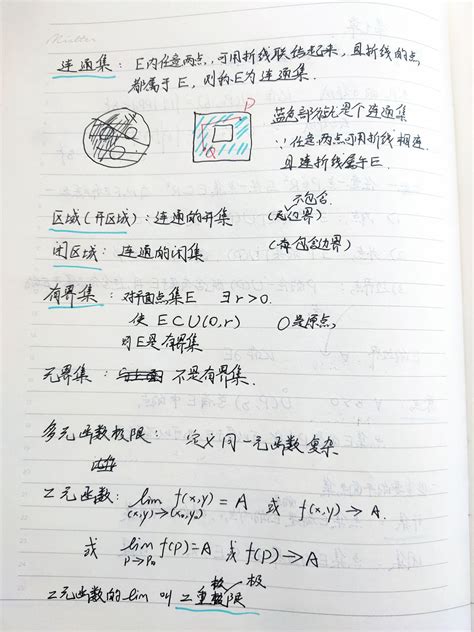 连通集：E内任意两点，可用折线联结起来，且折线的点
都属于E，则称E为连通集.
P
Q
蓝色部分就是个连通集
∵任意两点可用折线相连
且连折线属于E.
区域(开区域)：连通的开集 (无边界) 不包含
闭区域：连通的闭集 (包含边界)
有界集：对平面点集E ∃r>0.
使 E⊂U(0,r) 0是原点,
则E是有界集
无界集： 不是有界集.
多元函数极限： 定义同一元函数复杂
二元函数：lim f(x,y)=A 或 f(x,y)→A.
(x,y)→(x₀,y₀)
或 lim f(P)=A 或 f(P)→A
P→P₀
二元函数的lim 叫 二重极限 极